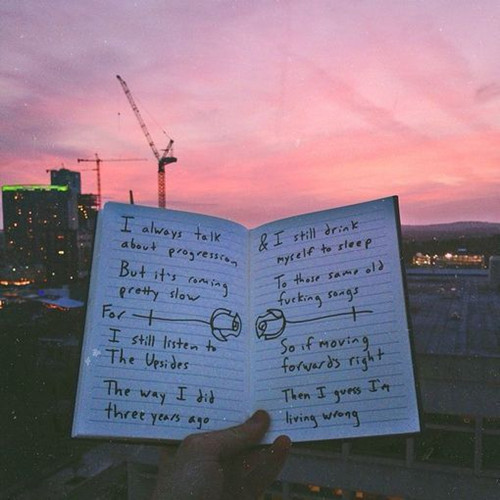 I always talk
about progression
But it's coming
pretty slow
For
I still listen to
The Upsides
The way I did
three years ago
& I still drink
myself to sleep
To those same old
fucking songs
So if moving
forwards right
Then I guess I'm
living wrong